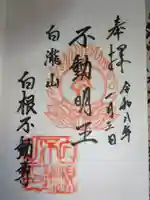 奉拝
令和八年
一月三日
不動明王
白滝山
白根不動尊